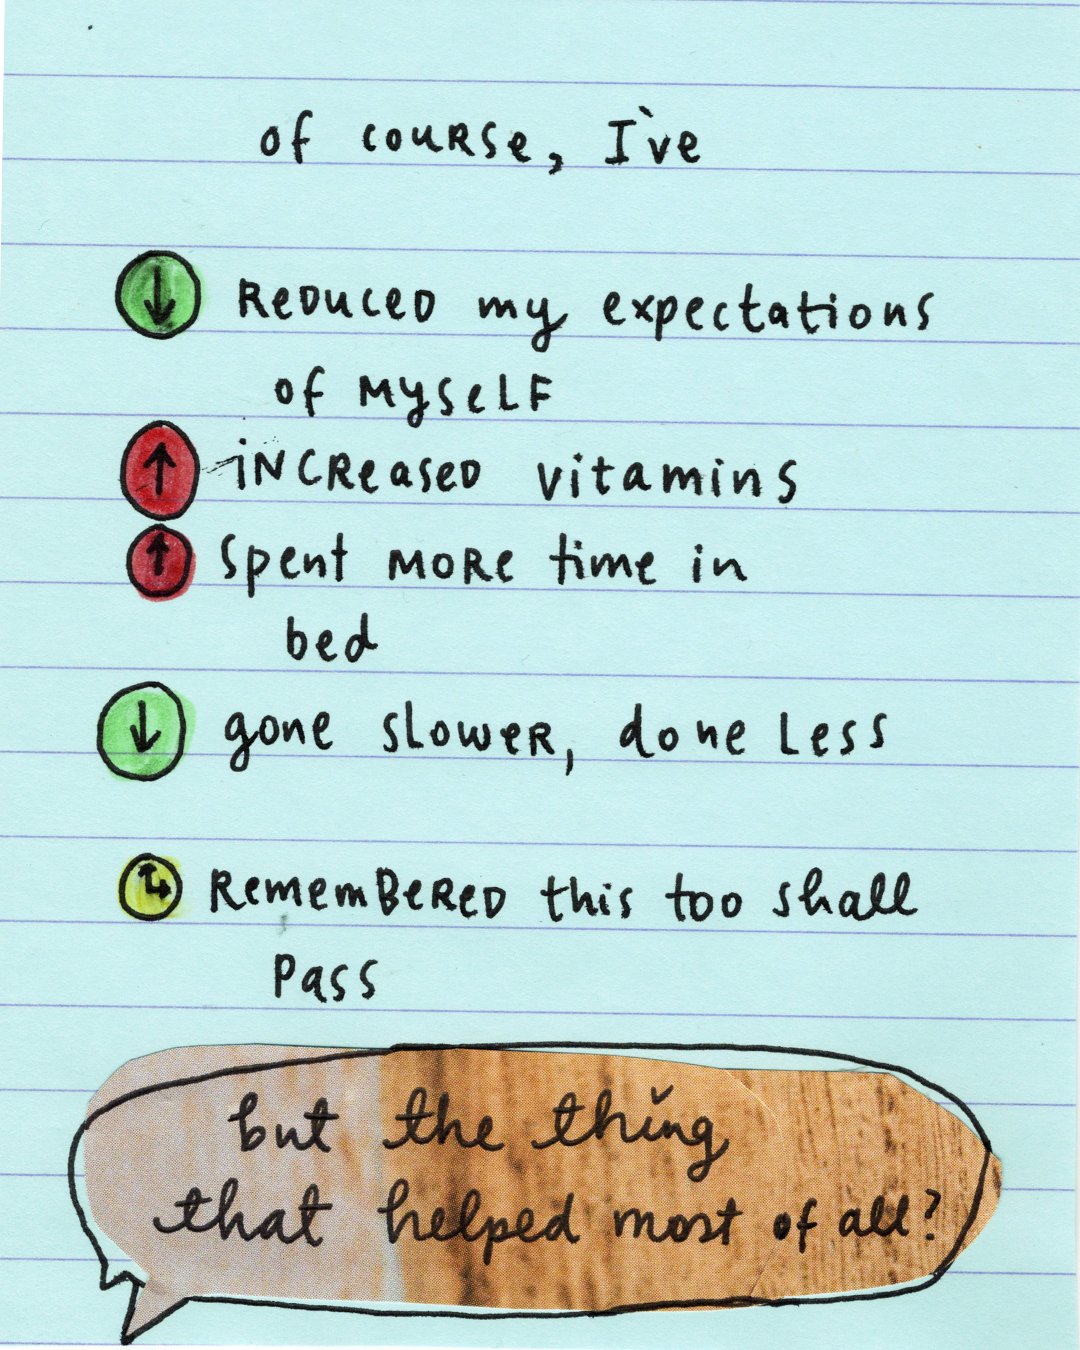 of course, I've
Reduced my expectations
of myself
increased vitamins
spent more time in
bed
gone slower, done less
Remembered this too shall
pass
but the thing
that helped most of all?